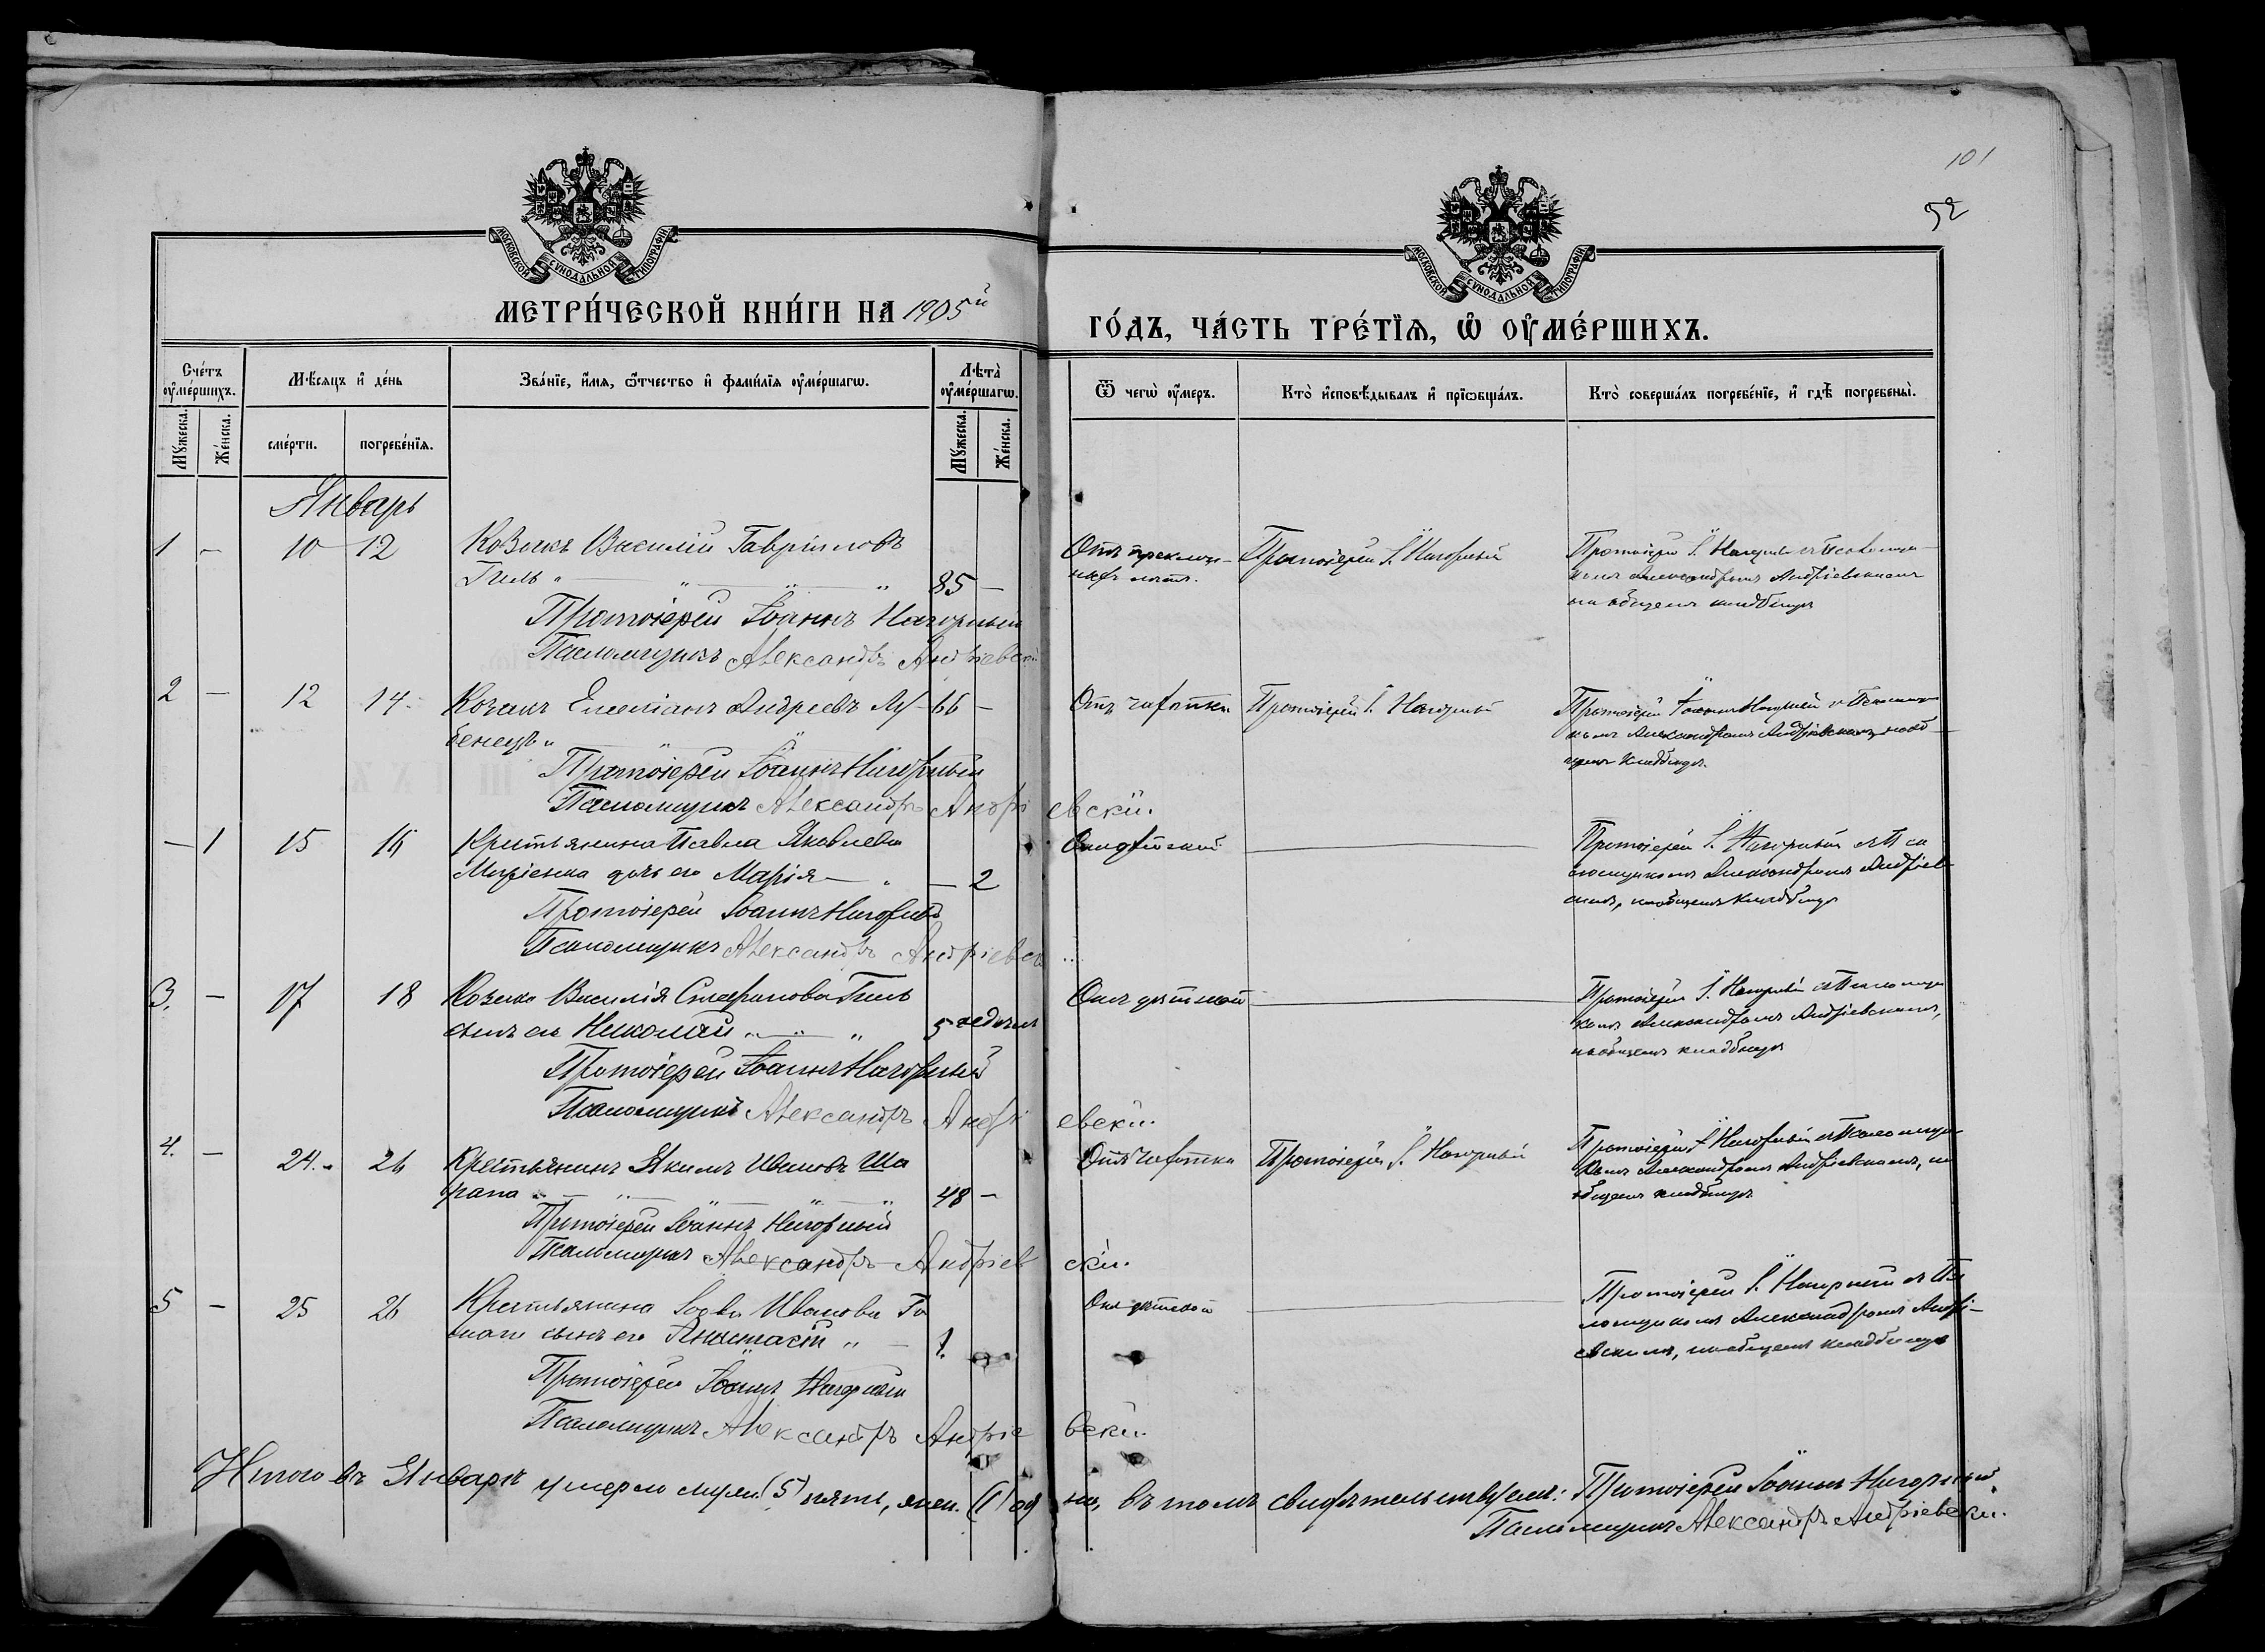 101
52
МОСКОВСКОЙ СѴНОДАЛЬНОЙ ТИПОГРАФІИ
МОСКОВСКОЙ СѴНОДАЛЬНОЙ ТИПОГРАФІИ
МЕТРИ́ЧЕСКОЙ КНИ́ГИ НА 1905й
ГО́ДЪ, ЧА́СТЬ ТРЕ́ТІѦ, Ѡ ОУ҆МЕ́РШИХЪ.
Сче́тъ оу҆ме́ршихъ.
Мѣ́сяцъ и҆ де́нь
Зва́нїе, и҆́мѧ, ѻ҆́тчество и҆ фамі́лїѧ оу҆ме́ршагѡ.
Лѣта̀ оу҆ме́ршагѡ.
Ѿ чегѡ̀ оу҆́меръ.
Кто̀ и҆сповѣ́дывалъ и҆ прїѡбща́лъ.
Кто̀ соверша́лъ погребе́нїе, и҆ гдѣ̀ погребены̀.
Мꙋ́жеска.
Же́нска.
сме́рти.
погребе́нїѧ.
Мꙋ́жеска.
Же́нска.
Январь
1 – 10 12 Козакъ Василій Гавріиловъ
Гиль " " " " 85 –
Протоіерей Іоаннъ Нагорный
Псаломщикъ Александръ Андріевскій
Отъ преклон-
ныхъ лѣтъ.
Протоіерей І. Нагорный
Протоіерей І. Нагорный съ Псаломщи-
комъ Александромъ Андріевскимъ
на общемъ кладбищѣ
2 – 12 14. Козакъ Емеліанъ Андреевъ Лу- 66 –
бенецъ "
Протоіерей Іоаннъ Нагорный
Псаломщикъ Александръ Андріевскій.
Отъ чахотки
Протоіерей І. Нагорный
Протоіерей Іоаннъ Нагорный съ Псаломщи
комъ Александромъ Андріевскимъ, на об-
щемъ кладбищѣ.
– 1 15 16 Крестьянина Павла Яковлева
дочь его Марія – " – 2
Протоіерей Іоаннъ Нагорный
Псаломщикъ Александръ Андріевск
Отъ дѣтской
Протоіерей І. Нагорный съ Пса
ломщикомъ Александромъ Андріев
скимъ, на общемъ кладбищѣ
3. – 17 18 Козака Василія Стефанова Гиль
сынъ его Николай " " " 5 недѣль
Протоіерей Іоаннъ Нагорный
Псаломщикъ Александръ Андріевскій.
Отъ дѣтской
Протоіерей І. Нагорный съ Псаломщи
комъ Александромъ Андріевскимъ,
на общемъ кладбищѣ
4. – 24. 26 Крестьянинъ Якимъ Ивановъ Ша
рапа " " " " 48 –
Протоіерей Іоаннъ Нагорный
Псаломщикъ Александръ Андріевскій.
Отъ чахотки
Протоіерей І. Нагорный
Протоіерей І. Нагорный съ Псаломщи
комъ Александромъ Андріевскимъ, на
общемъ кладбищѣ
5 – 25 26 Крестьянина Іова Иванова
сынъ его Анастасій " – 1.
Протоіерей Іоаннъ Нагорный
Псаломщикъ Александръ Андріевскій.
Отъ дѣтской
Протоіерей І. Нагорный съ Пса
ломщикомъ Александромъ Андрі-
евскимъ, на общемъ кладбищѣ
Итого въ Январѣ умерло муж. (5) пять, жен. (1) одна, въ томъ свидѣтельствуемъ: Протоіерей Іоаннъ Нагорный.
Псаломщикъ Александръ Андріевскій.